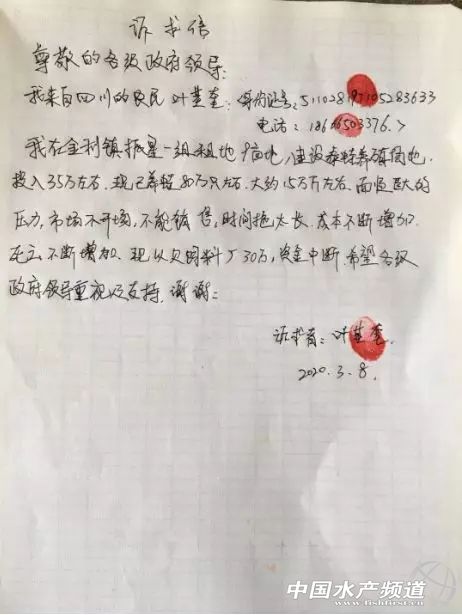 诉求信
尊敬的各级政府领导：
我来自四川的农民 叶其奎：身份证号：511028197105283633
电话：18666503376.
我在金利镇 星一组租地 亩地，建设泰蛙养殖围地.
投入35万左右. 现已养蛙80万只左右. 大约15万斤左右. 面临巨大的
压力，市场不开场，不能销售，时间拖太长，成本不断增加.
死亡不断增加. 现以欠饲料厂30万，资金中断 希望各级
政府领导重视以支持. 谢谢：
诉求者：叶其奎.
2020.3.8.
中国水产频道
www.fishfirst.cn